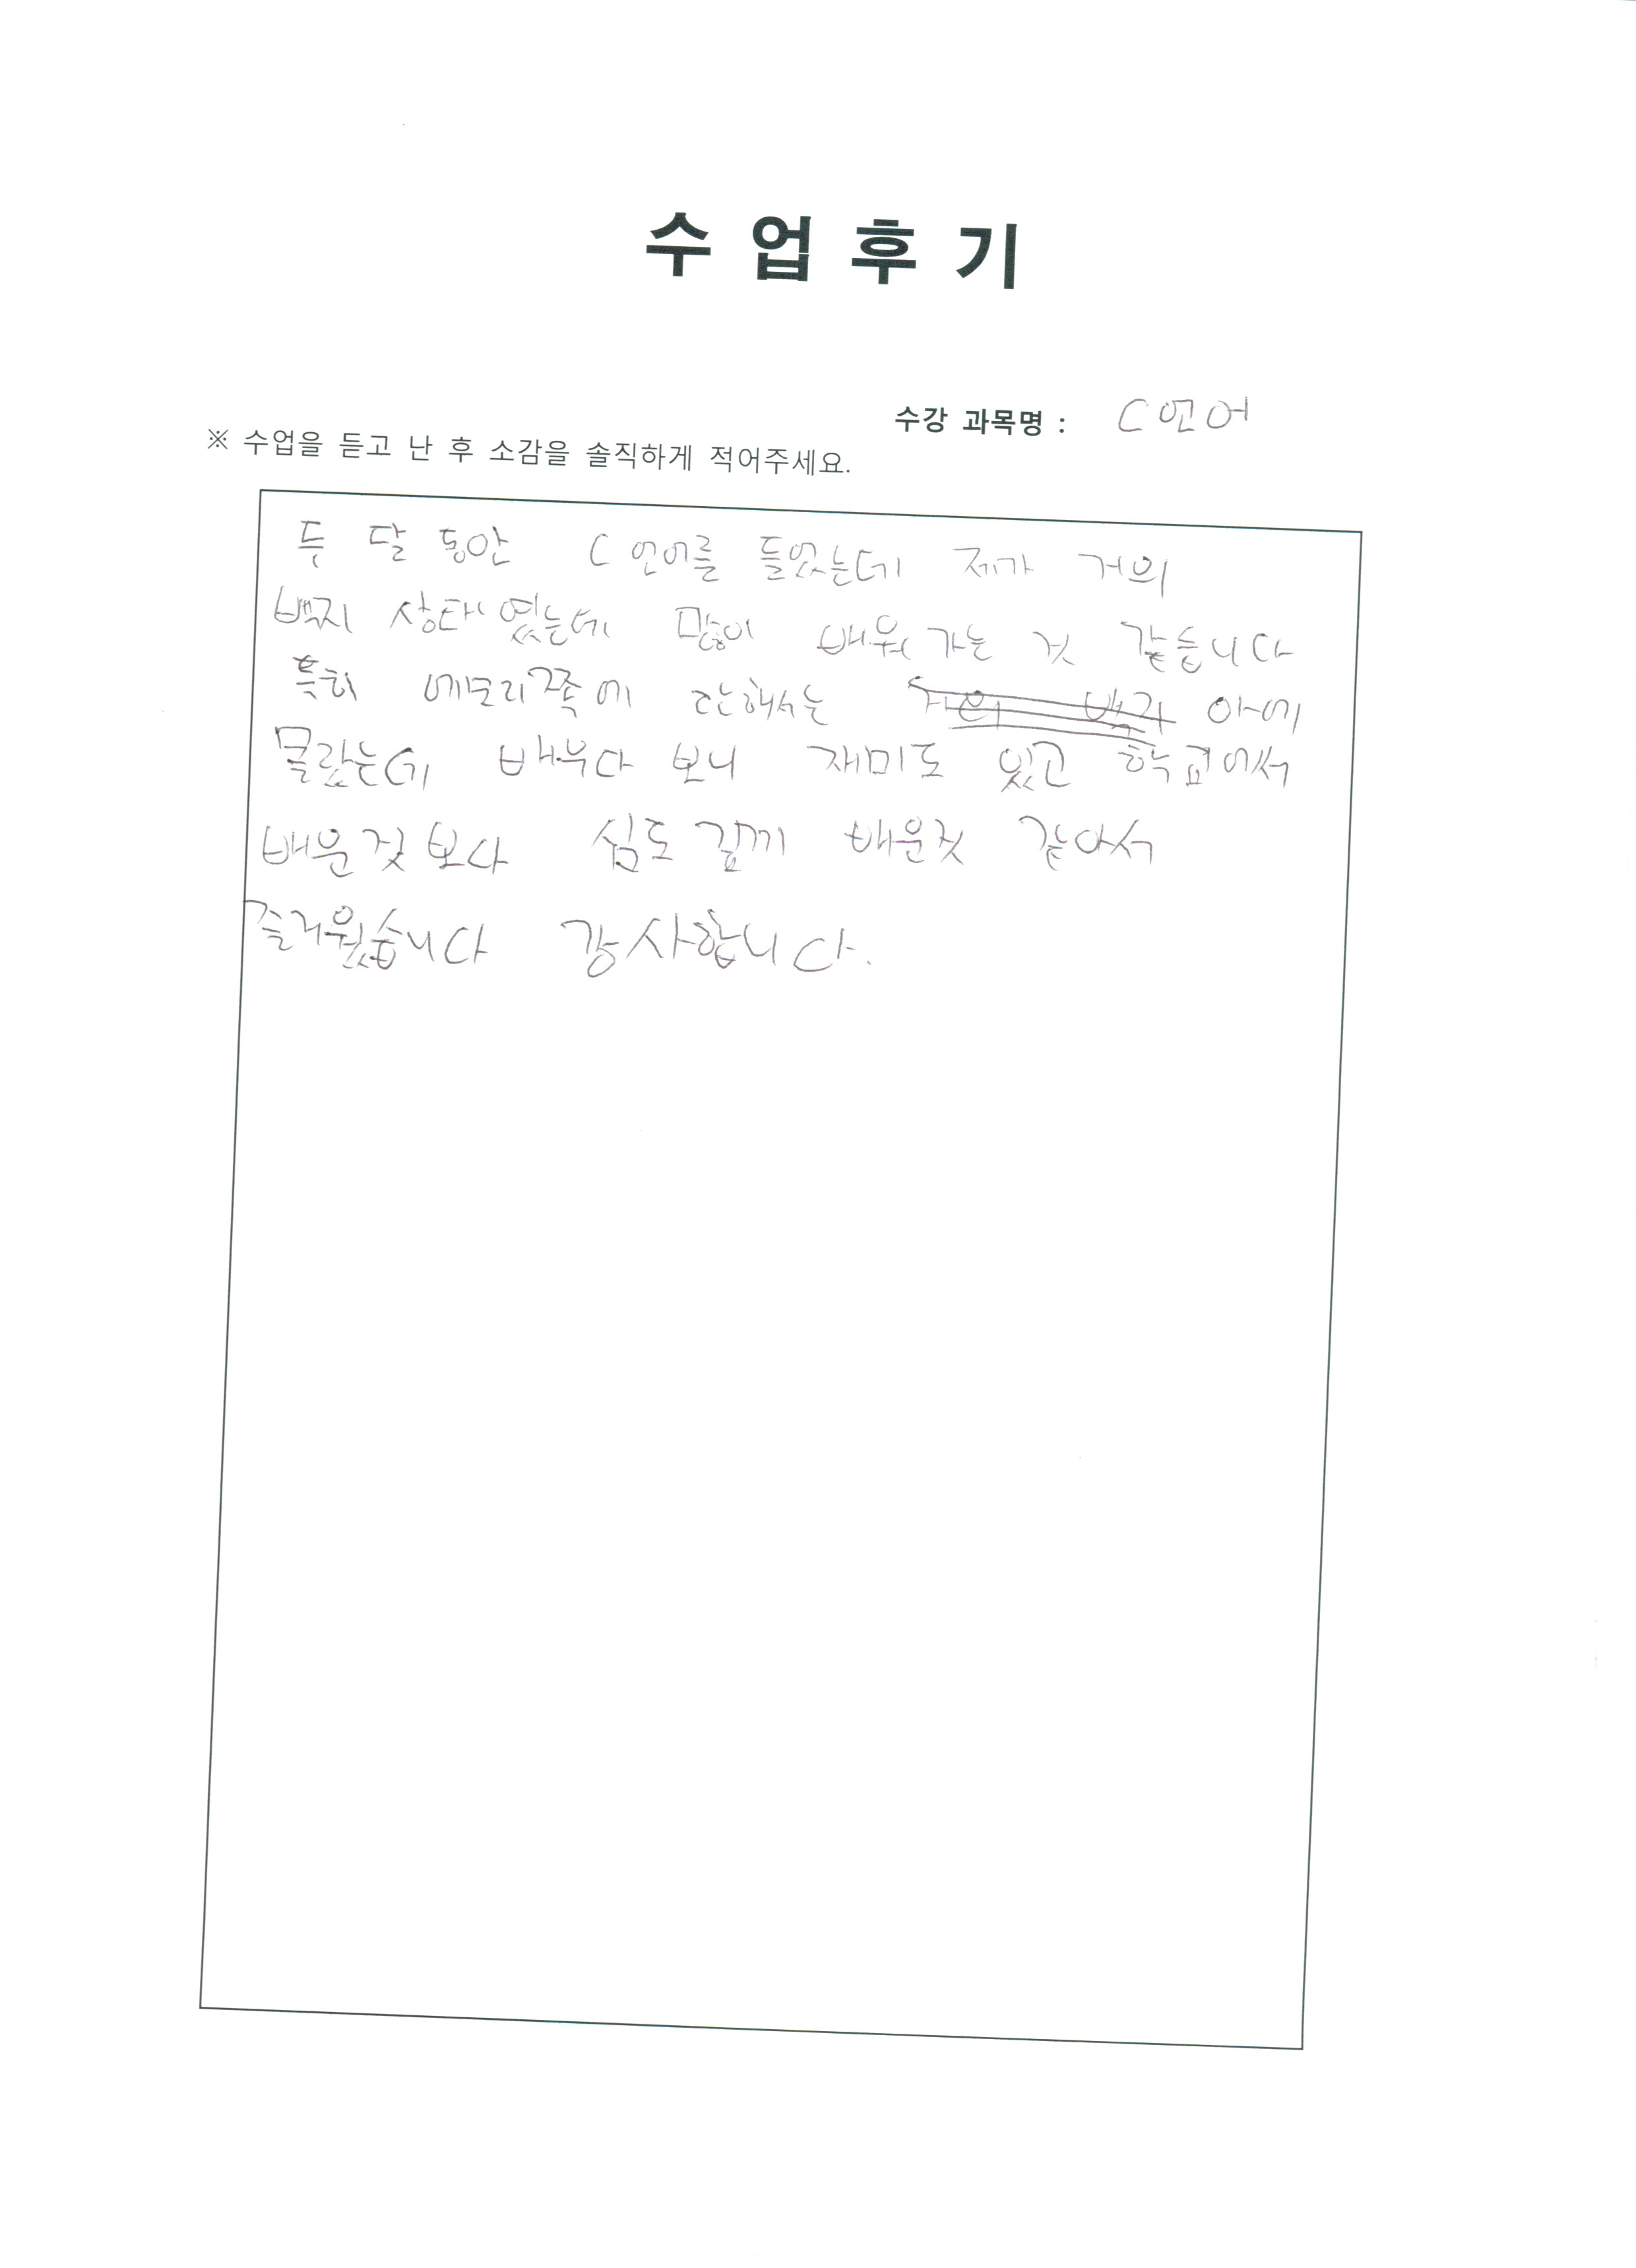 수업후기
수강 과목명 : C언어
※ 수업을 듣고 난 후 소감을 솔직하게 적어주세요.
두 달 동안 C언어를 들었는데 제가 거의
백지 상태였는데 많이 배워 가는 것 같습니다
특히 메모리쪽에 관해서는 아에
몰랐는데 배우다 보니 재미도 있고 학교에서
배운것보다 심도 깊게 배운것 같아서
즐거웠습니다 감사합니다.